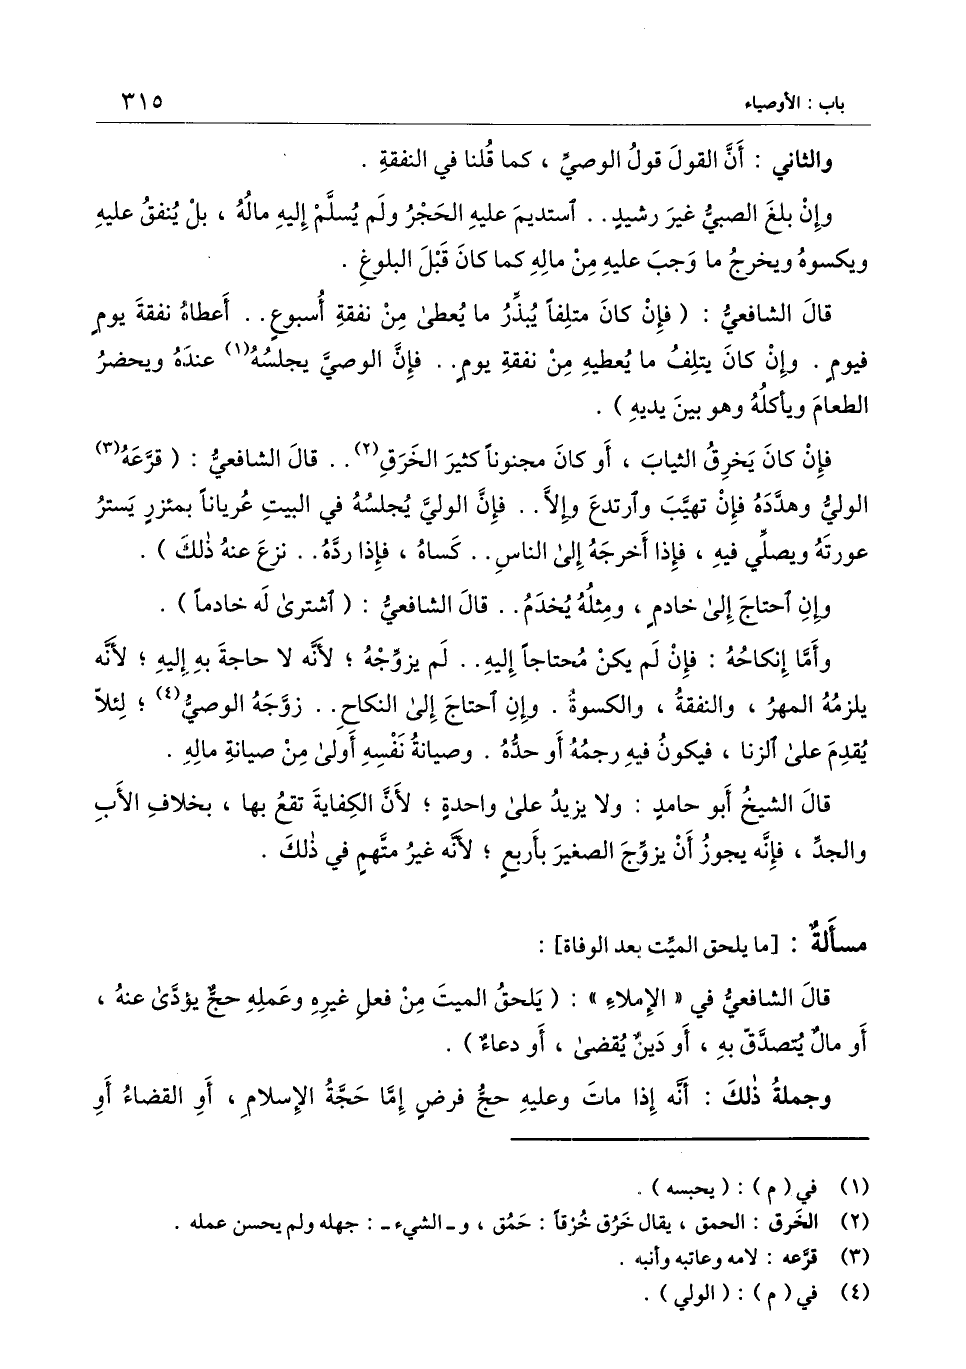 باب : الأوصياء ٣١٥
والثاني : أَنَّ القولَ قولُ الوصيِّ ، كما قُلنا في النفقةِ .
وإِنْ بلغَ الصبيُّ غيرَ رشيدٍ . . ٱستديمَ عليهِ الحَجْرُ ولَم يُسلَّمْ إِليهِ مالُهُ ، بلْ يُنفقُ عليهِ
ويكسوهُ ويخرجُ ما وَجبَ عليهِ مِنْ مالِهِ كما كانَ قَبْلَ البلوغِ .
قالَ الشافعيُّ : ( فإِنْ كانَ متلِفاً يُبذِّرُ ما يُعطىٰ مِنْ نفقةِ أُسبوعٍ . . أَعطاهُ نفقةَ يومٍ
فيومٍ . وإِنْ كانَ يتلِفُ ما يُعطيهِ مِنْ نفقةِ يومٍ . . فإِنَّ الوصيَّ يجلسُهُ(١) عندَهُ ويحضرُ
الطعامَ ويأكلُهُ وهو بينَ يديهِ ) .
فإِنْ كانَ يَخرِقُ الثيابَ ، أَو كانَ مجنوناً كثيرَ الخَرَقِ(٢) . . قالَ الشافعيُّ : ( قرَّعَهُ(٣)
الوليُّ وهدَّدَهُ فإِنْ تهيَّبَ وٱرتدعَ وإِلاَّ . . فإِنَّ الوليَّ يُجلسُهُ في البيتِ عُرياناً بمئزرٍ يَسترُ
عورتَهُ ويصلِّي فيهِ ، فإِذا أَخرجَهُ إِلىٰ الناسِ . . كَساهُ ، فإِذا ردَّهُ . . نزعَ عنهُ ذٰلكَ ) .
وإِنِ ٱحتاجَ إِلىٰ خادمٍ ، ومِثلُهُ يُخدَمُ . . قالَ الشافعيُّ : ( ٱشترىٰ لَه خادماً ) .
وأَمَّا إِنكاحُهُ : فإِنْ لَم يكنْ مُحتاجاً إِليهِ . . لَم يزوِّجْهُ ؛ لأَنَّه لا حاجةَ بهِ إِليهِ ؛ لأَنَّه
يلزمُهُ المهرُ ، والنفقةُ ، والكسوةُ . وإِنِ ٱحتاجَ إِلىٰ النكاحِ . . زوَّجَهُ الوصيُّ(٤) ؛ لِئلاَّ
يُقدِمَ علىٰ ٱلزنا ، فيكونُ فيهِ رجمُهُ أَو حدُّهُ . وصيانةُ نَفْسِهِ أَولىٰ مِنْ صيانةِ مالِهِ .
قالَ الشيخُ أَبو حامدٍ : ولا يزيدُ علىٰ واحدةٍ ؛ لأَنَّ الكِفايةَ تقعُ بها ، بخلافِ الأَبِ
والجدِّ ، فإِنَّه يجوزُ أَنْ يزوِّجَ الصغيرَ بأَربعٍ ؛ لأَنَّه غيرُ متَّهمٍ في ذٰلكَ .
مسأَلةٌ : [ما يلحق الميِّت بعد الوفاة] :
قالَ الشافعيُّ في « الإِملاءِ » : ( يَلحقُ الميتَ مِنْ فعلِ غيرِهِ وعَملِهِ حجٌّ يؤدَّىٰ عنهُ ،
أَو مالٌ يُتصدَّقُ بهِ ، أَو دَينٌ يُقضىٰ ، أَو دعاءٌ ) .
وجملةُ ذٰلكَ : أَنَّه إِذا ماتَ وعليهِ حجُّ فرضٍ إِمَّا حَجَّةُ الإِسلامِ ، أَوِ القضاءُ أَوِ
(١) في ( م ) : ( يحبسه ) .
(٢) الخَرق : الحمق ، يقال خَرُق خُرْقاً : حَمُق ، و ـ الشيء ـ : جهله ولم يحسن عمله .
(٣) قرَّعه : لامه وعاتبه وأنبه .
(٤) في ( م ) : ( الولي ) .